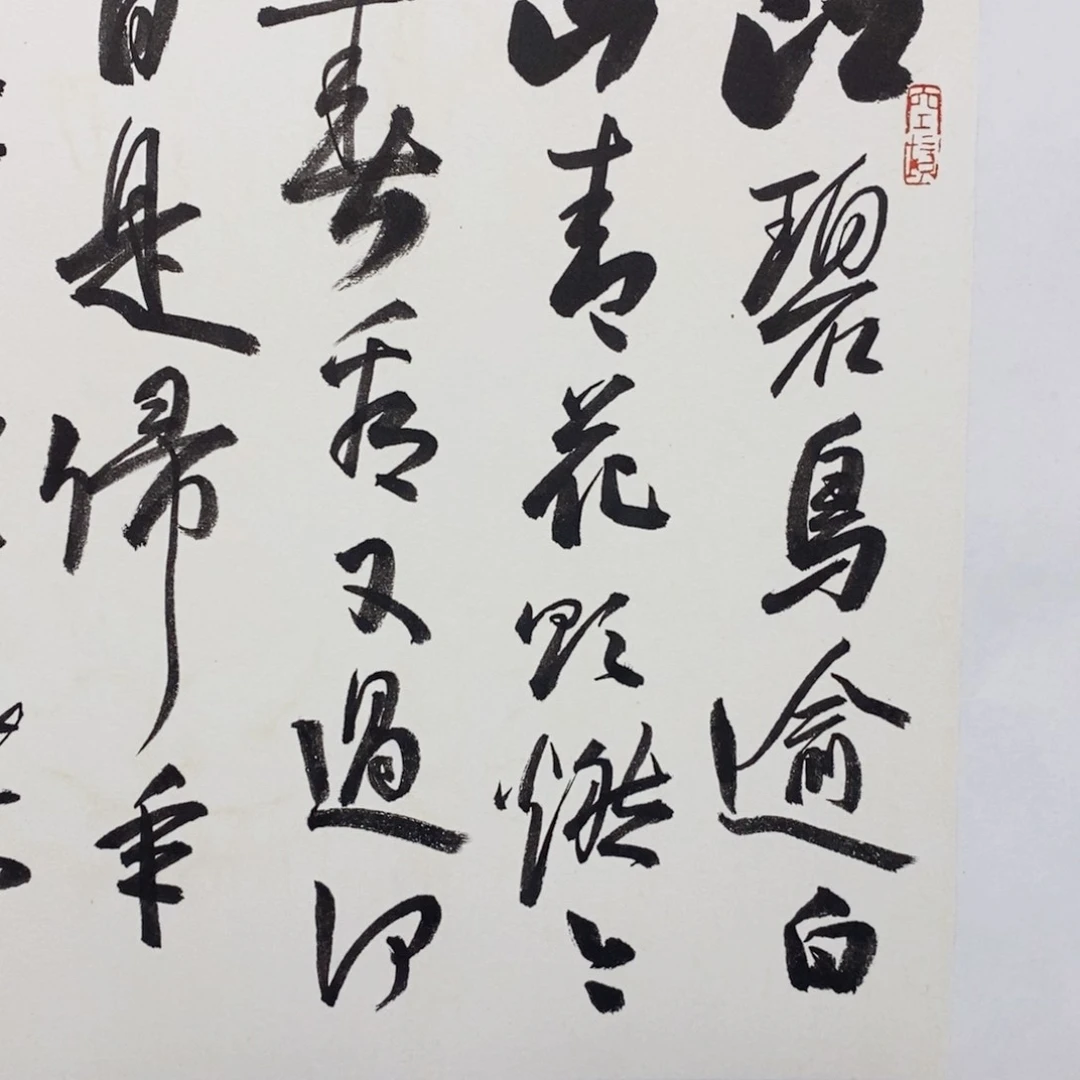 江碧鳥逾白
山青花欲燃今
春看又過何
日是歸年